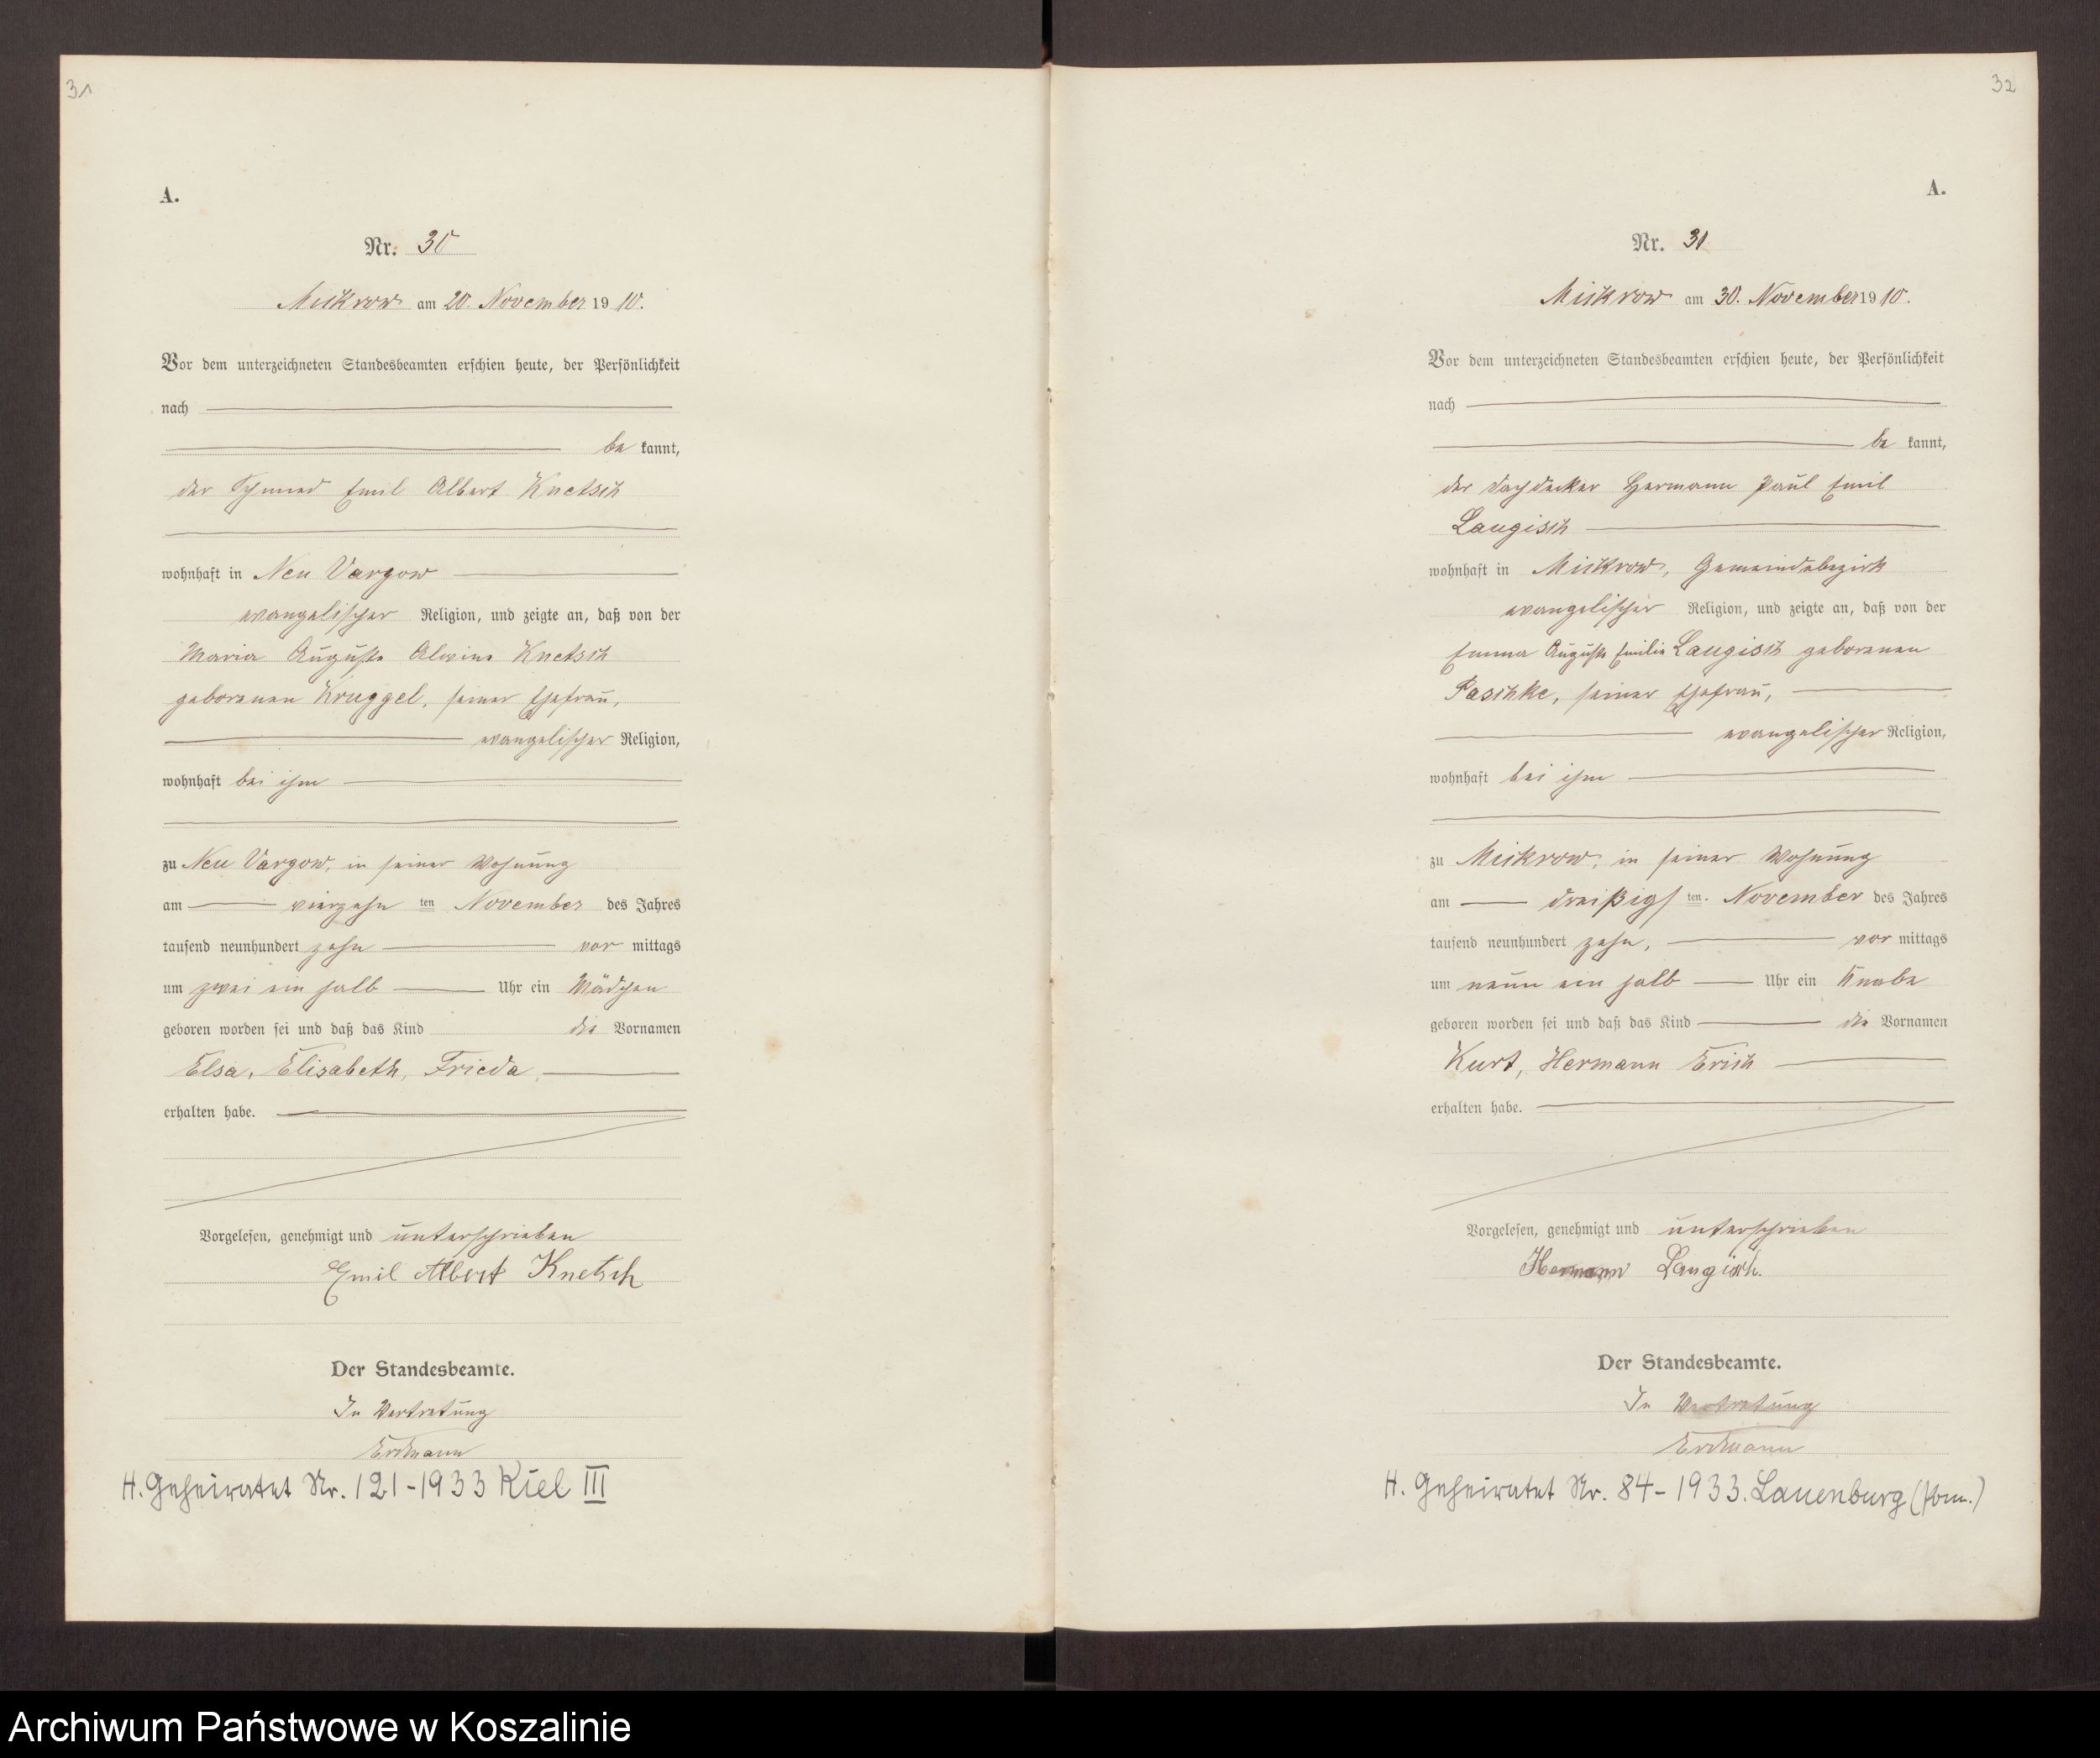 31
A.
Nr. 30
Mickrow am 20. November 1910.
Vor dem unterzeichneten Standesbeamten erschien heute, der Persönlichkeit
nach
be kannt,
der Schmied Emil Albert Knetsch
wohnhaft in Neu Vargow
evangelischer Religion, und zeigte an, daß von der
Maria Auguste Alwine Knetsch
geborenen Kruggel, seiner Ehefrau,
evangelischer Religion,
wohnhaft bei ihm
zu Neu Vargow, in seiner Wohnung
am vierzehn ten November des Jahres
tausend neunhundert zehn vor mittags
um zwei ein halb Uhr ein Mädchen
geboren worden sei und daß das Kind die Vornamen
Elsa, Elisabeth, Frieda
erhalten habe.
Vorgelesen, genehmigt und unterschrieben
Emil Albert Knetsch
Der Standesbeamte.
In Vertretung
Erdmann
H. Geheiratet Nr. 121-1933 Kiel III
32
A.
Nr. 31
Mickrow am 30. November 1910.
Vor dem unterzeichneten Standesbeamten erschien heute, der Persönlichkeit
nach
be kannt,
der Dachdecker Hermann Paul Emil
Laugisch
wohnhaft in Mickrow, Gemeindebezirk
evangelischer Religion, und zeigte an, daß von der
Emma Auguste Emilie Laugisch geborenen
Paschke, seiner Ehefrau,
evangelischer Religion,
wohnhaft bei ihm
zu Mickrow, in seiner Wohnung
am dreißigs ten November des Jahres
tausend neunhundert zehn, vor mittags
um neun ein halb Uhr ein Knabe
geboren worden sei und daß das Kind die Vornamen
Kurt, Hermann Erich
erhalten habe.
Vorgelesen, genehmigt und unterschrieben
Hermann Laugisch.
Der Standesbeamte.
In Vertretung
Erdmann
H. Geheiratet Nr. 84-1933. Lauenburg (Pom.)
Archiwum Państwowe w Koszalinie